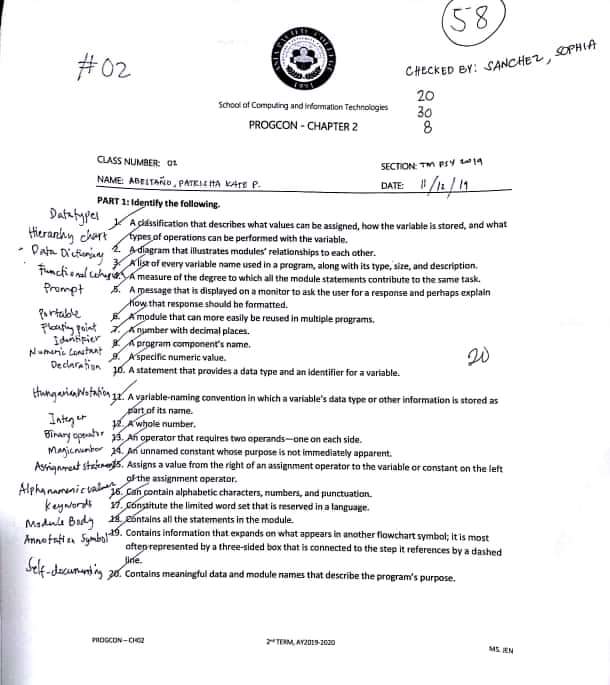 58
#02
CHECKED BY: SANCHEZ, SOPHIA
ASIA PACIFIC COLLEGE
1991
20
30
8
School of Computing and Information Technologies
PROGCON - CHAPTER 2
CLASS NUMBER: 02
SECTION: TM PSY 2019
NAME: ABELTAÑO, PATRISHA KATE P.
DATE: 11/12/19
PART 1: Identify the following.
Datatypes 1. A classification that describes what values can be assigned, how the variable is stored, and what
types of operations can be performed with the variable.
Hierarchy chart 2. A diagram that illustrates modules' relationships to each other.
Data Dictionary 3. A list of every variable name used in a program, along with its type, size, and description.
Functional 4. A measure of the degree to which all the module statements contribute to the same task.
Prompt 5. A message that is displayed on a monitor to ask the user for a response and perhaps explain
how that response should be formatted.
Portable 6. A module that can more easily be reused in multiple programs.
Floating point 7. A number with decimal places.
Identifier 8. A program component's name.
Numeric Constant 9. A specific numeric value.
Declaration 10. A statement that provides a data type and an identifier for a variable.
20
Hungarian Notation 11. A variable-naming convention in which a variable's data type or other information is stored as
part of its name.
Integer 12. A whole number.
Binary operator 13. An operator that requires two operands—one on each side.
Magic number 14. An unnamed constant whose purpose is not immediately apparent.
Assignment 15. Assigns a value from the right of an assignment operator to the variable or constant on the left
of the assignment operator.
16. Can contain alphabetic characters, numbers, and punctuation.
Keywords 17. Constitute the limited word set that is reserved in a language.
Module Body 18. Contains all the statements in the module.
Annotation Symbol 19. Contains information that expands on what appears in another flowchart symbol; it is most
often represented by a three-sided box that is connected to the step it references by a dashed
line.
Self-documenting 20. Contains meaningful data and module names that describe the program's purpose.
PROGCON – CH02
2ND TERM, AY2019-2020
MS. JEN